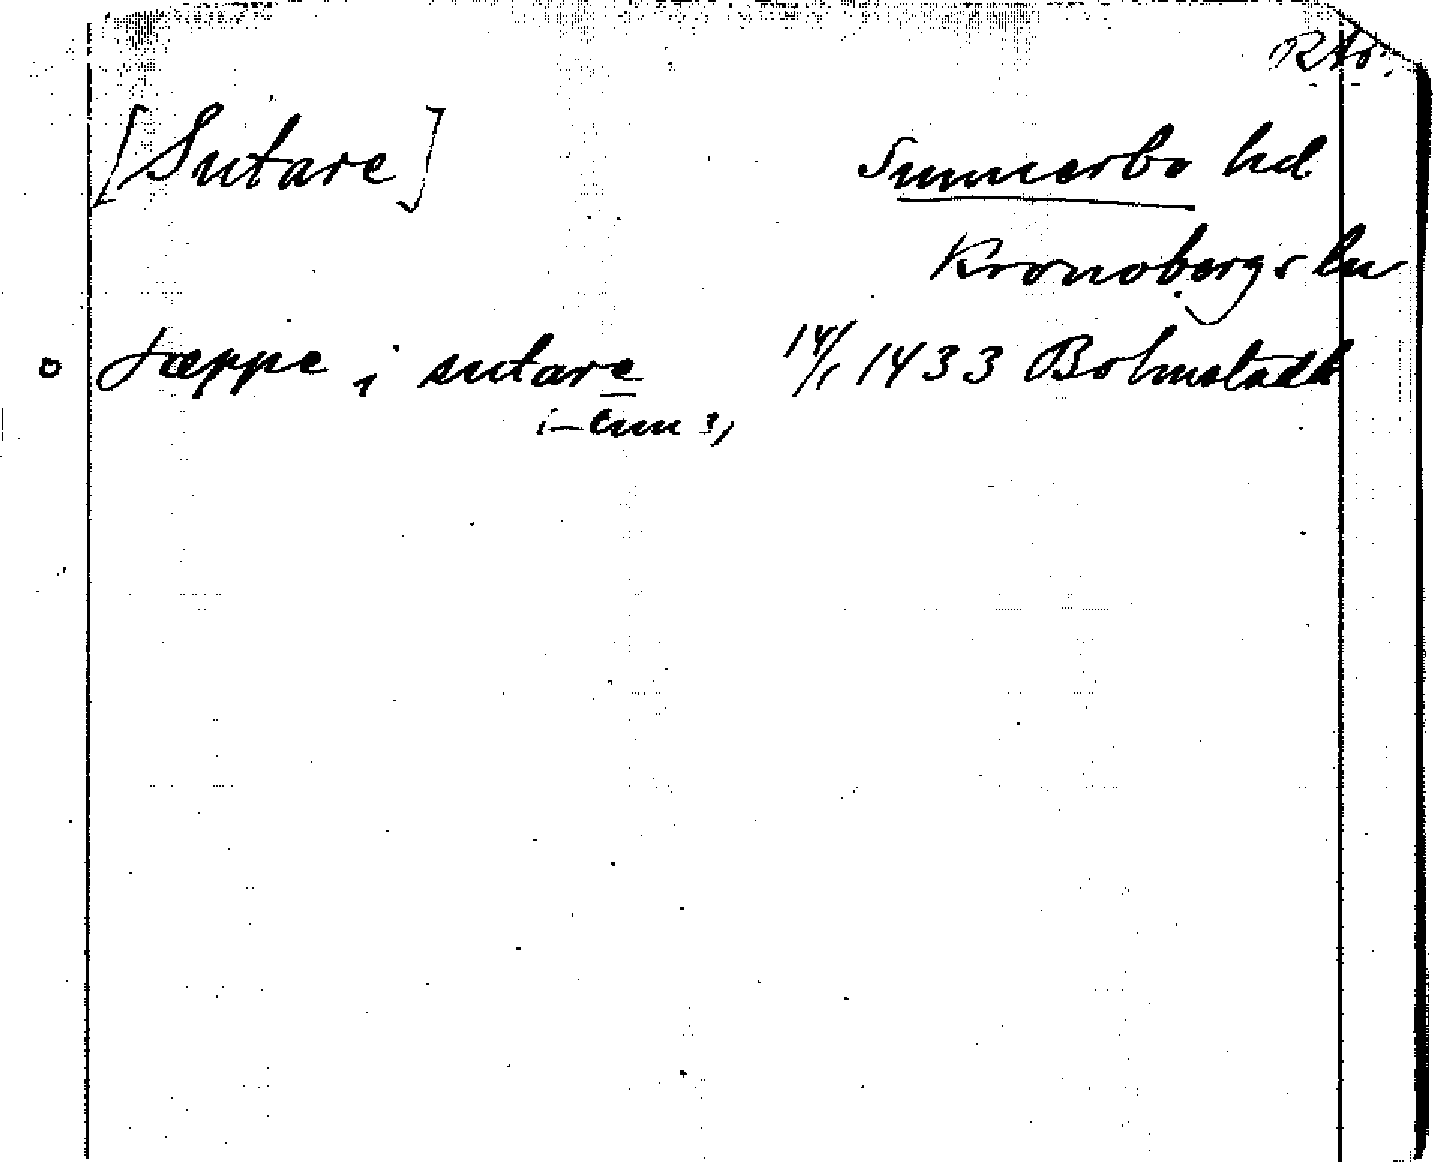 RAö.
[Sutare] Sunnerbo hd
Kronobergs ln
o tæppe i sutare 14/1 1433 Bolmstadh